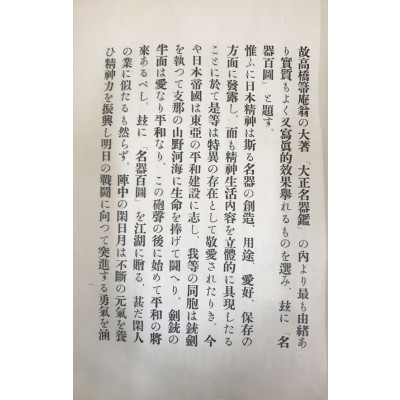 故高橋箒庵翁の大著「大正名器鑑」の内より最も由緒あ
り實質もよく又寫眞的效果擧れるものを選み、玆に「名
器百圖」と題す。
惟ふに日本精神は斯る名器の創造、用途、愛好、保存の
方面に發露し、而も精神生活內容を立體的に具現したる
ことに於て是等は特異の存在として敬愛されたりき。今
や日本帝國は東亞の平和建設に志し、我等の同胞は銃劍
を執つて支那の山野河海に生命を捧げて鬪へり。劍銃の
半面は愛なり平和なり、この砲聲の後に始めて平和の將
來あるべし。玆に「名器百圖」を江湖に贈る、甚だ閑人
の業に似たるも然らず。陣中の閑日月は不斷の元氣を養
ひ精神力を振興し明日の戰鬪に向つて突進する勇氣を涵